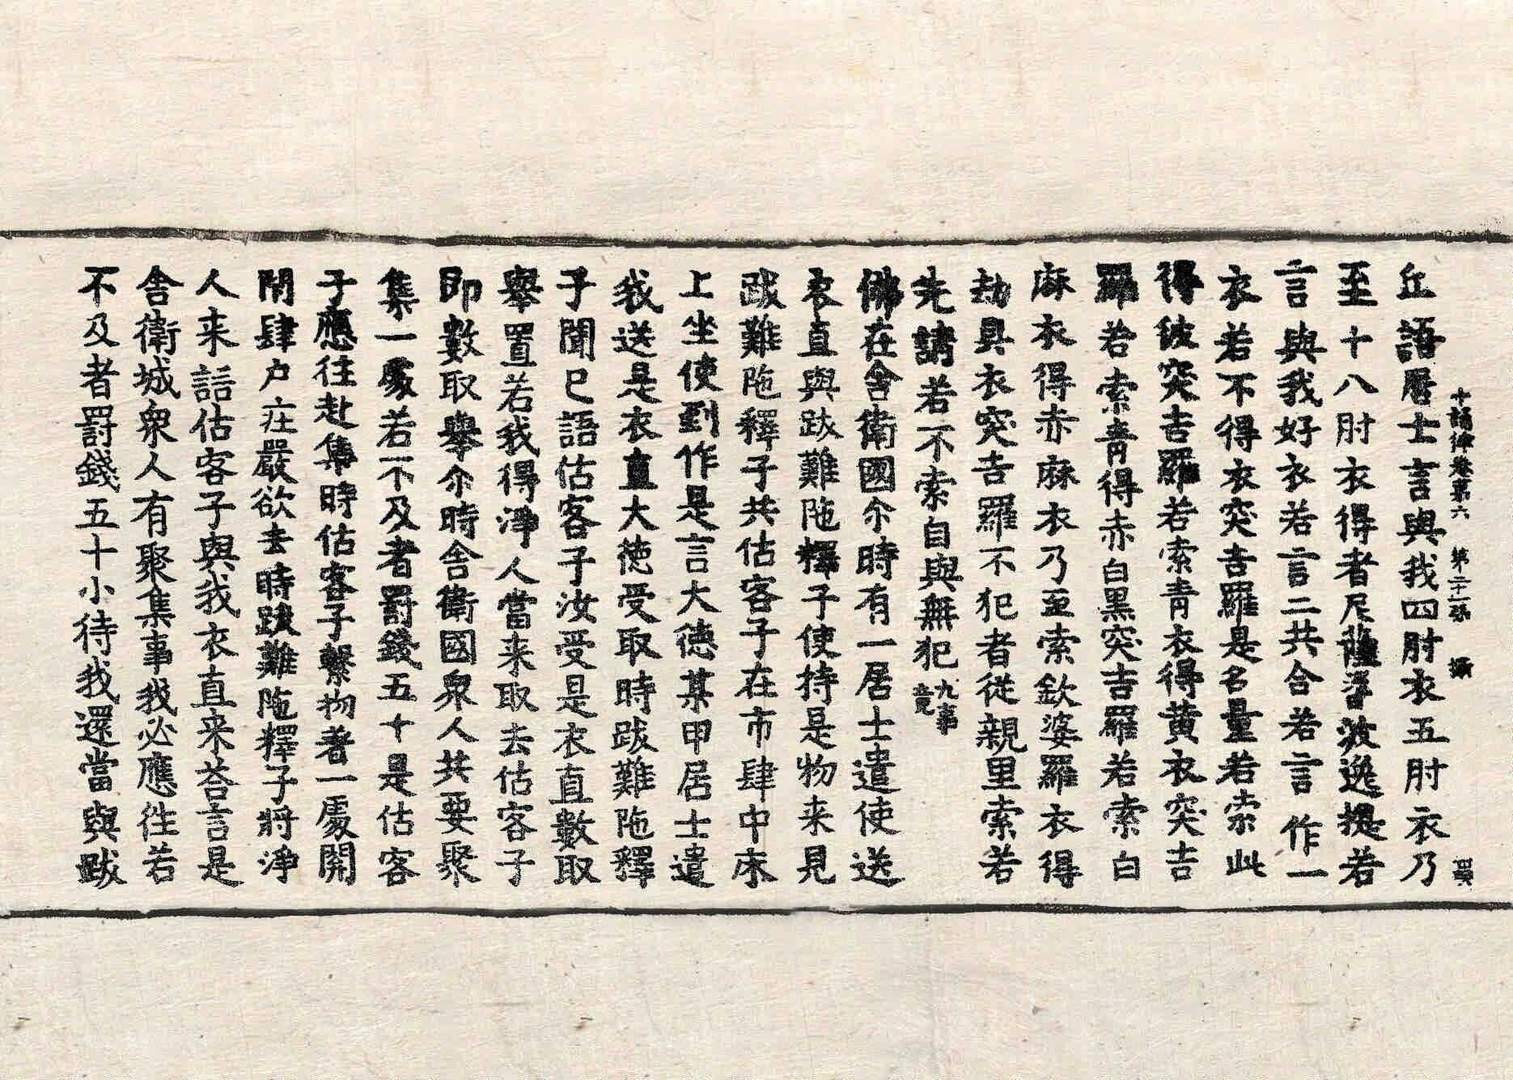 十誦律卷第六 第二十一張 攝
丘語居士言與我四肘衣五肘衣乃
至十八肘衣得者尼薩耆波逸提若
言與我好衣若言二共合若言作一
衣若不得衣突吉羅是名量若索此
得彼突吉羅若索青衣得黃衣突吉
羅若索青得赤白黑突吉羅若索白
麻衣得赤麻衣乃至索欽婆羅衣得
劫具衣突吉羅不犯者從親里索若
先請若不索自與無犯九事竟
佛在舍衛國尒時有一居士遣使送
衣直與跋難陁釋子使持是物来見
跋難陁釋子共估客子在市肆中床
上坐使到作是言大德某甲居士遣
我送是衣直大德受取時跋難陁釋
子聞已語估客子汝受是衣直數取
舉置若我得淨人當来取去估客子
即數取舉尒時舍衛國衆人共要聚
集一處若不及者罰錢五十是估客
子應往赴集時估客子繫物著一處開
閉肆戶庄嚴欲去時跋難陁釋子將淨
人来語估客子與我衣直来荅言是
舍衛城衆人有聚集事我必應往若
不及者罰錢五十小待我還當與跋